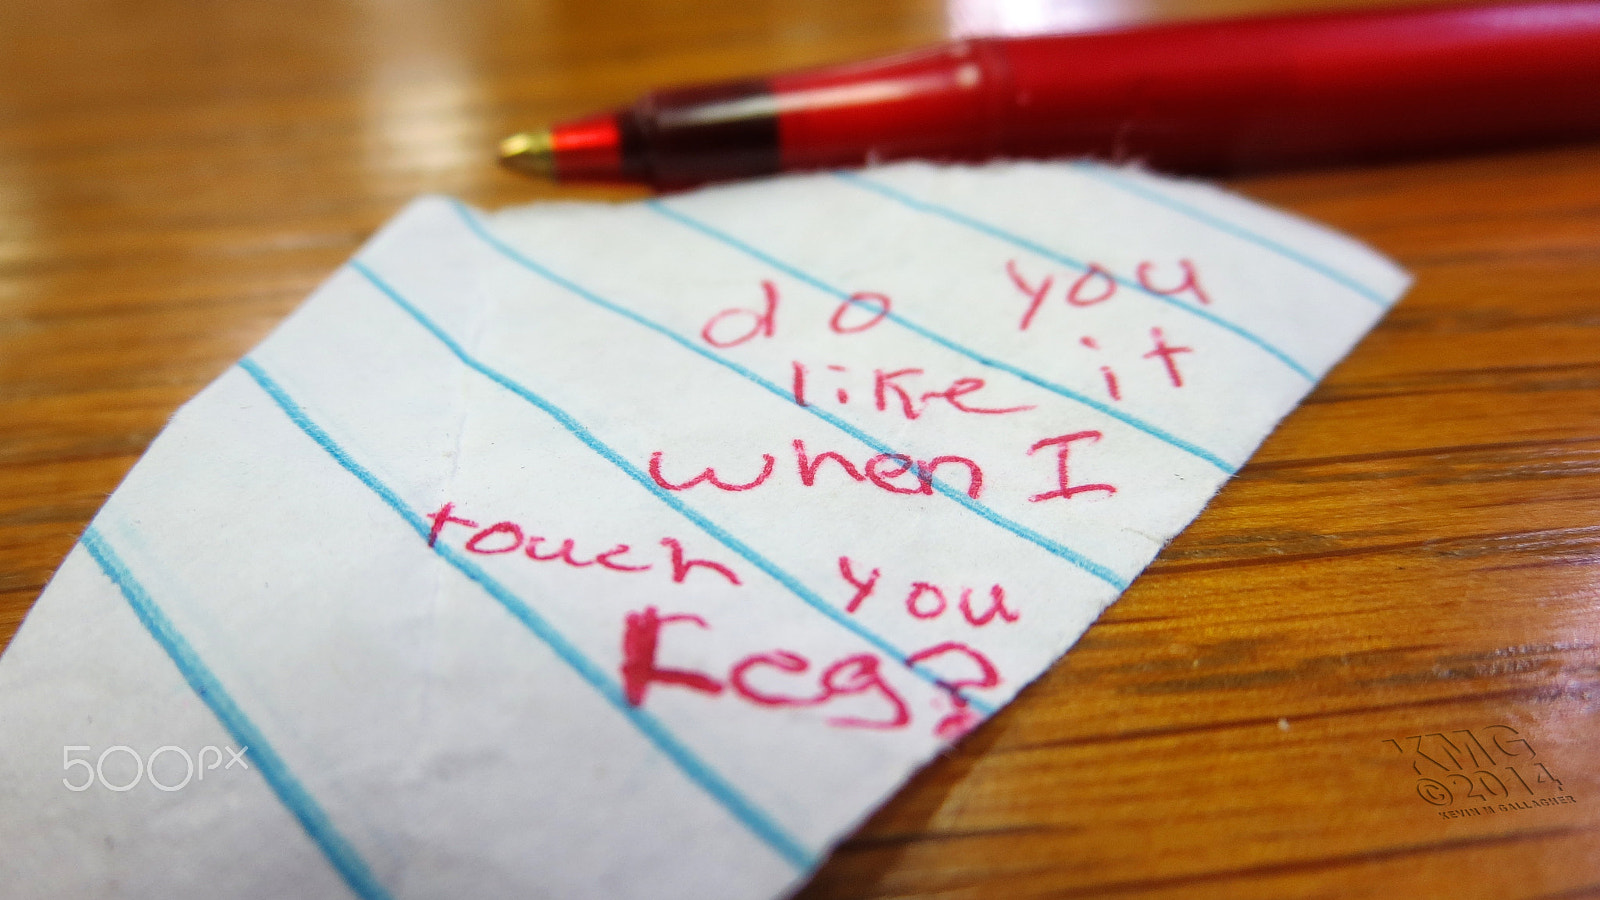 do you
like it
when I
touch you
Leg?
500px
KMG
©2014
KEVIN M GALLAGHER